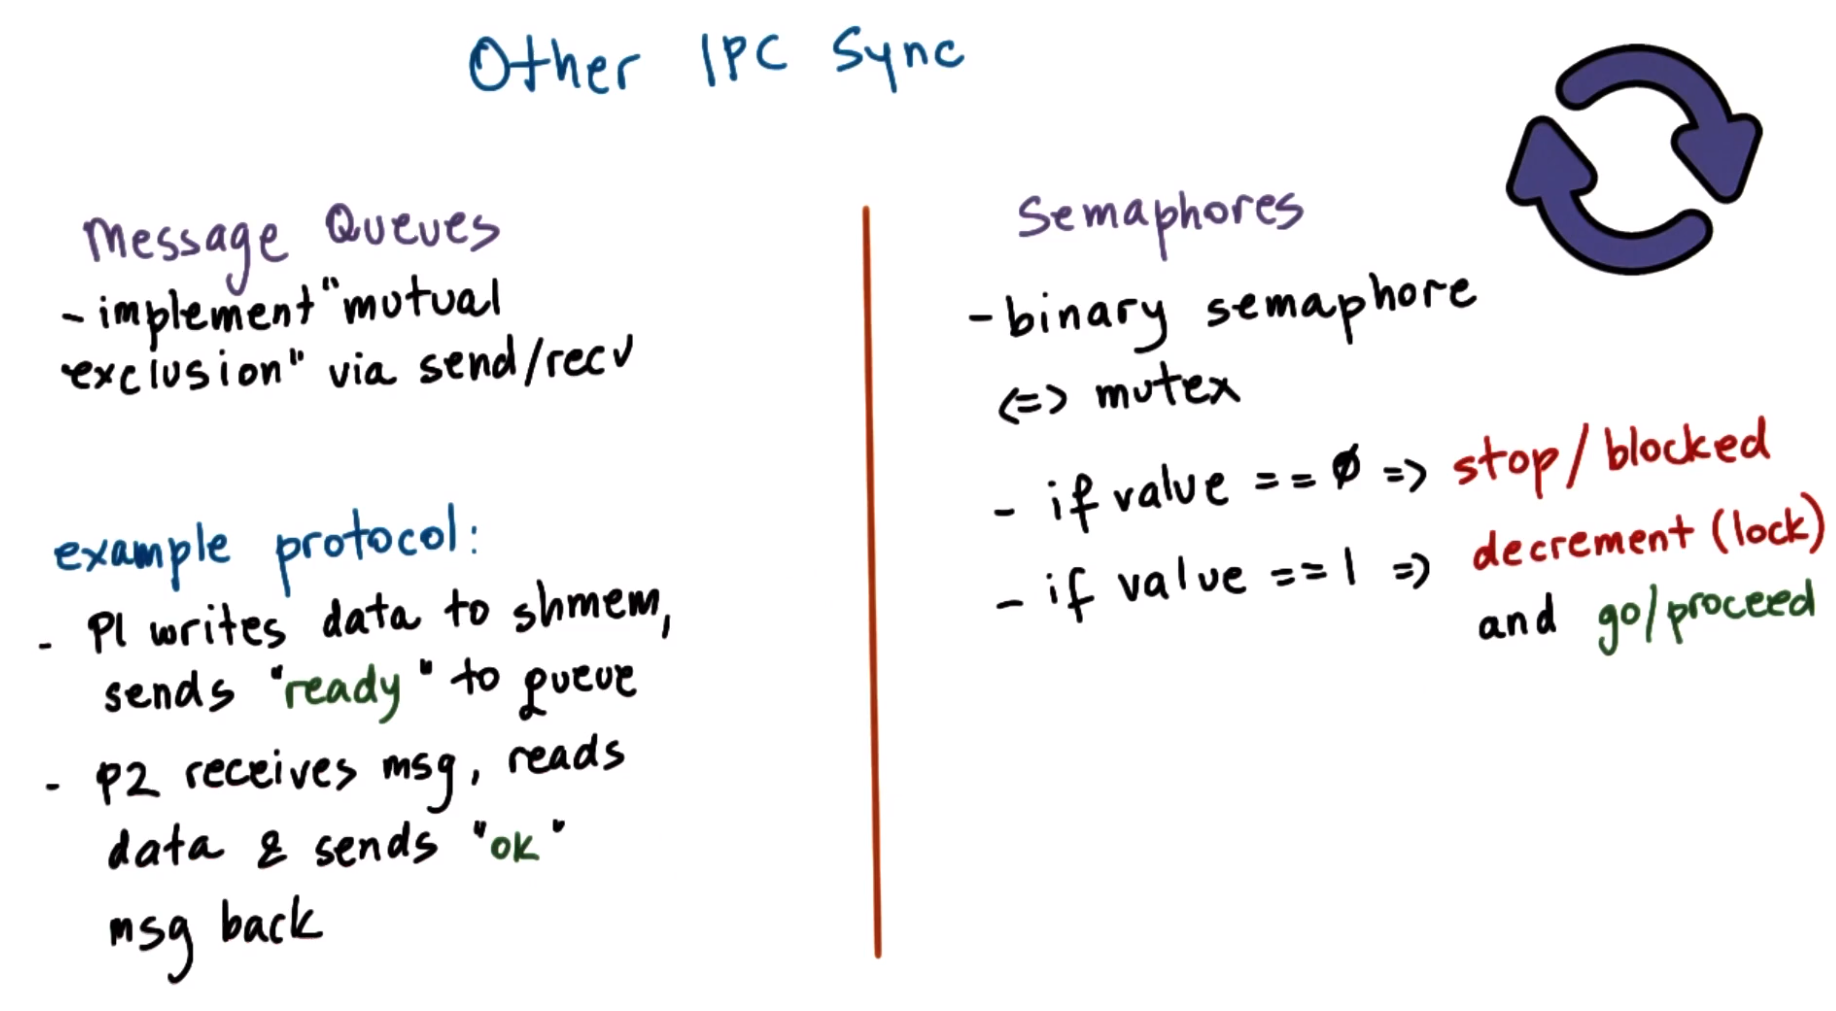 Other IPC Sync
Message Queues
- implement "mutual
exclusion" via send/recv
example protocol:
- P1 writes data to shmem,
sends "ready" to queue
- P2 receives msg, reads
data & sends "ok"
msg back
Semaphores
- binary semaphore
<=> mutex
- if value == 0 => stop/blocked
- if value == 1 => decrement (lock)
and go/proceed